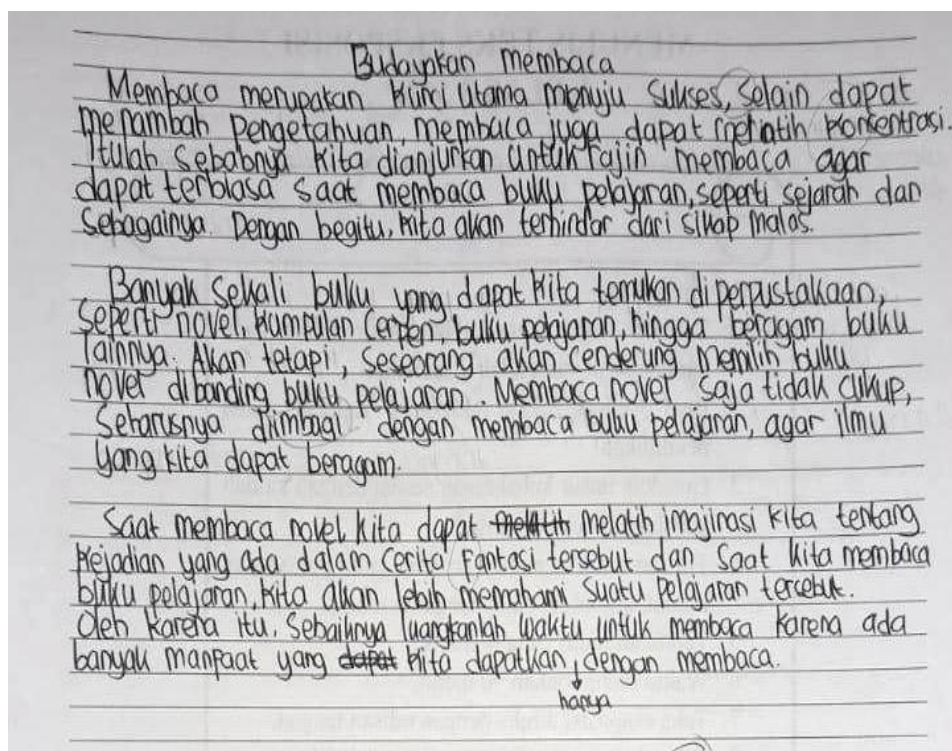 Budayakan membaca
Membaca merupakan kunci utama menuju sukses, selain dapat
menambah pengetahuan, membaca juga dapat melatih konsentrasi.
Itulah sebabnya kita dianjurkan untuk rajin membaca agar
dapat terbiasa saat membaca buku pelajaran, seperti sejarah dan
sebagainya. Dengan begitu, kita akan terhindar dari sikap malas.
Banyak sekali buku yang dapat kita temukan di perpustakaan,
seperti novel, kumpulan cerpen, buku pelajaran, hingga beragam buku
lainnya. Akan tetapi, seseorang akan cenderung memilih buku
novel dibanding buku pelajaran. Membaca novel saja tidak cukup,
Seharusnya diimbagi dengan membaca buku pelajaran, agar ilmu
yang kita dapat beragam.
Saat membaca novel kita dapat melatih imajinasi kita tentang
kejadian yang ada dalam cerita fantasi tersebut dan saat kita membaca
buku pelajaran, kita akan lebih memahami suatu pelajaran tersebut.
Oleh karena itu, sebaiknya luangkanlah waktu untuk membaca karena ada
banyak manfaat yang kita dapatkan dengan membaca.
hanya